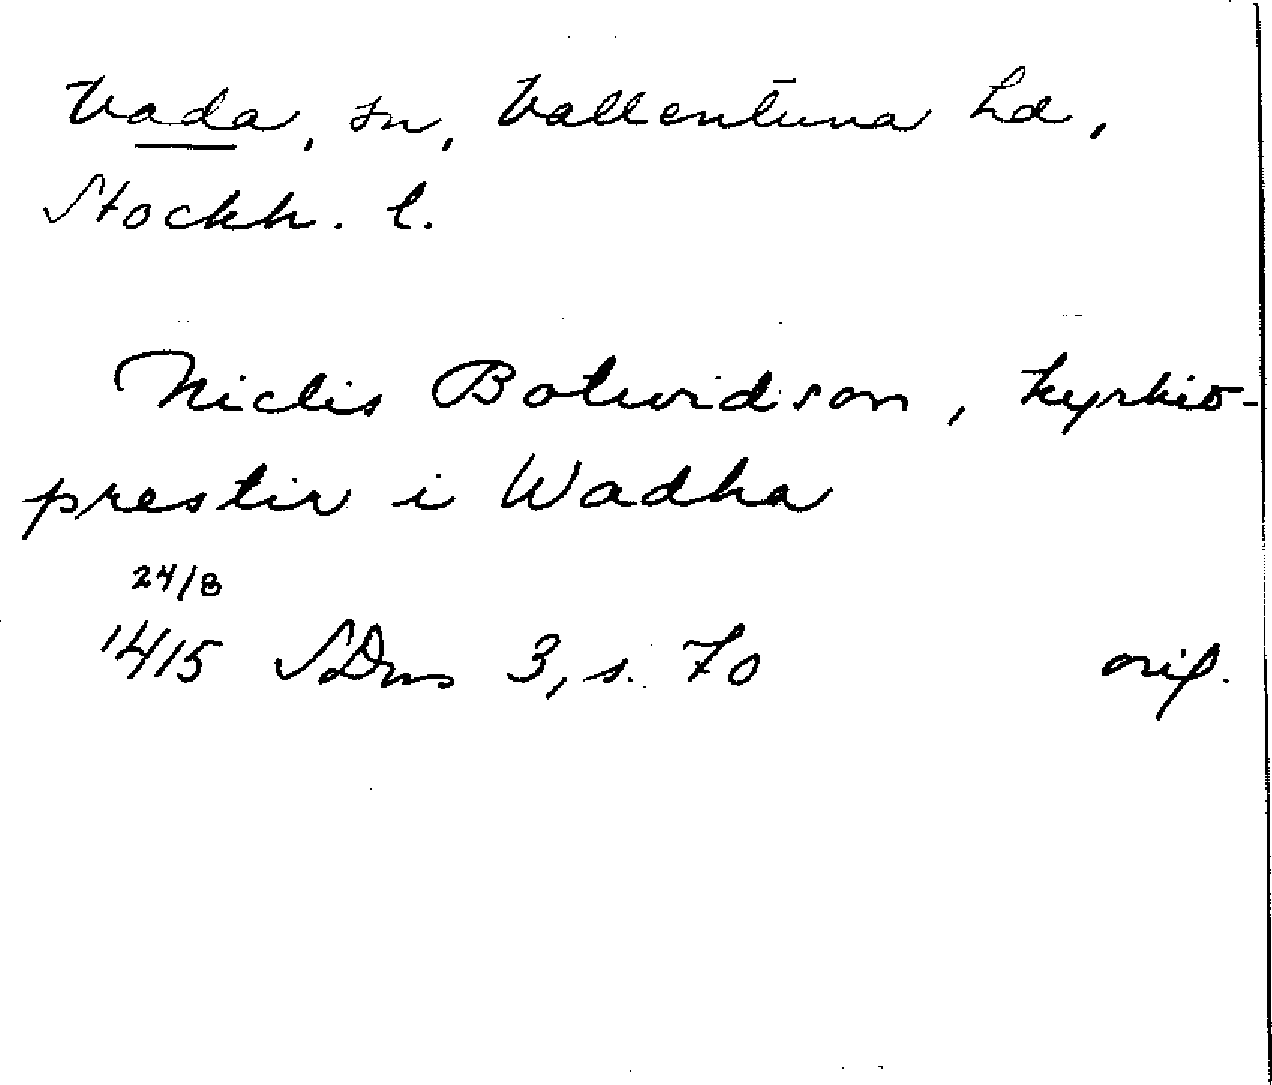 Vada, sn, Vallentuna hd,
Stockh. l.
Niclis Botwidson, kyrkio-
prestir i Wadha
24/8
1415 SDns 3, s. 70 orig.